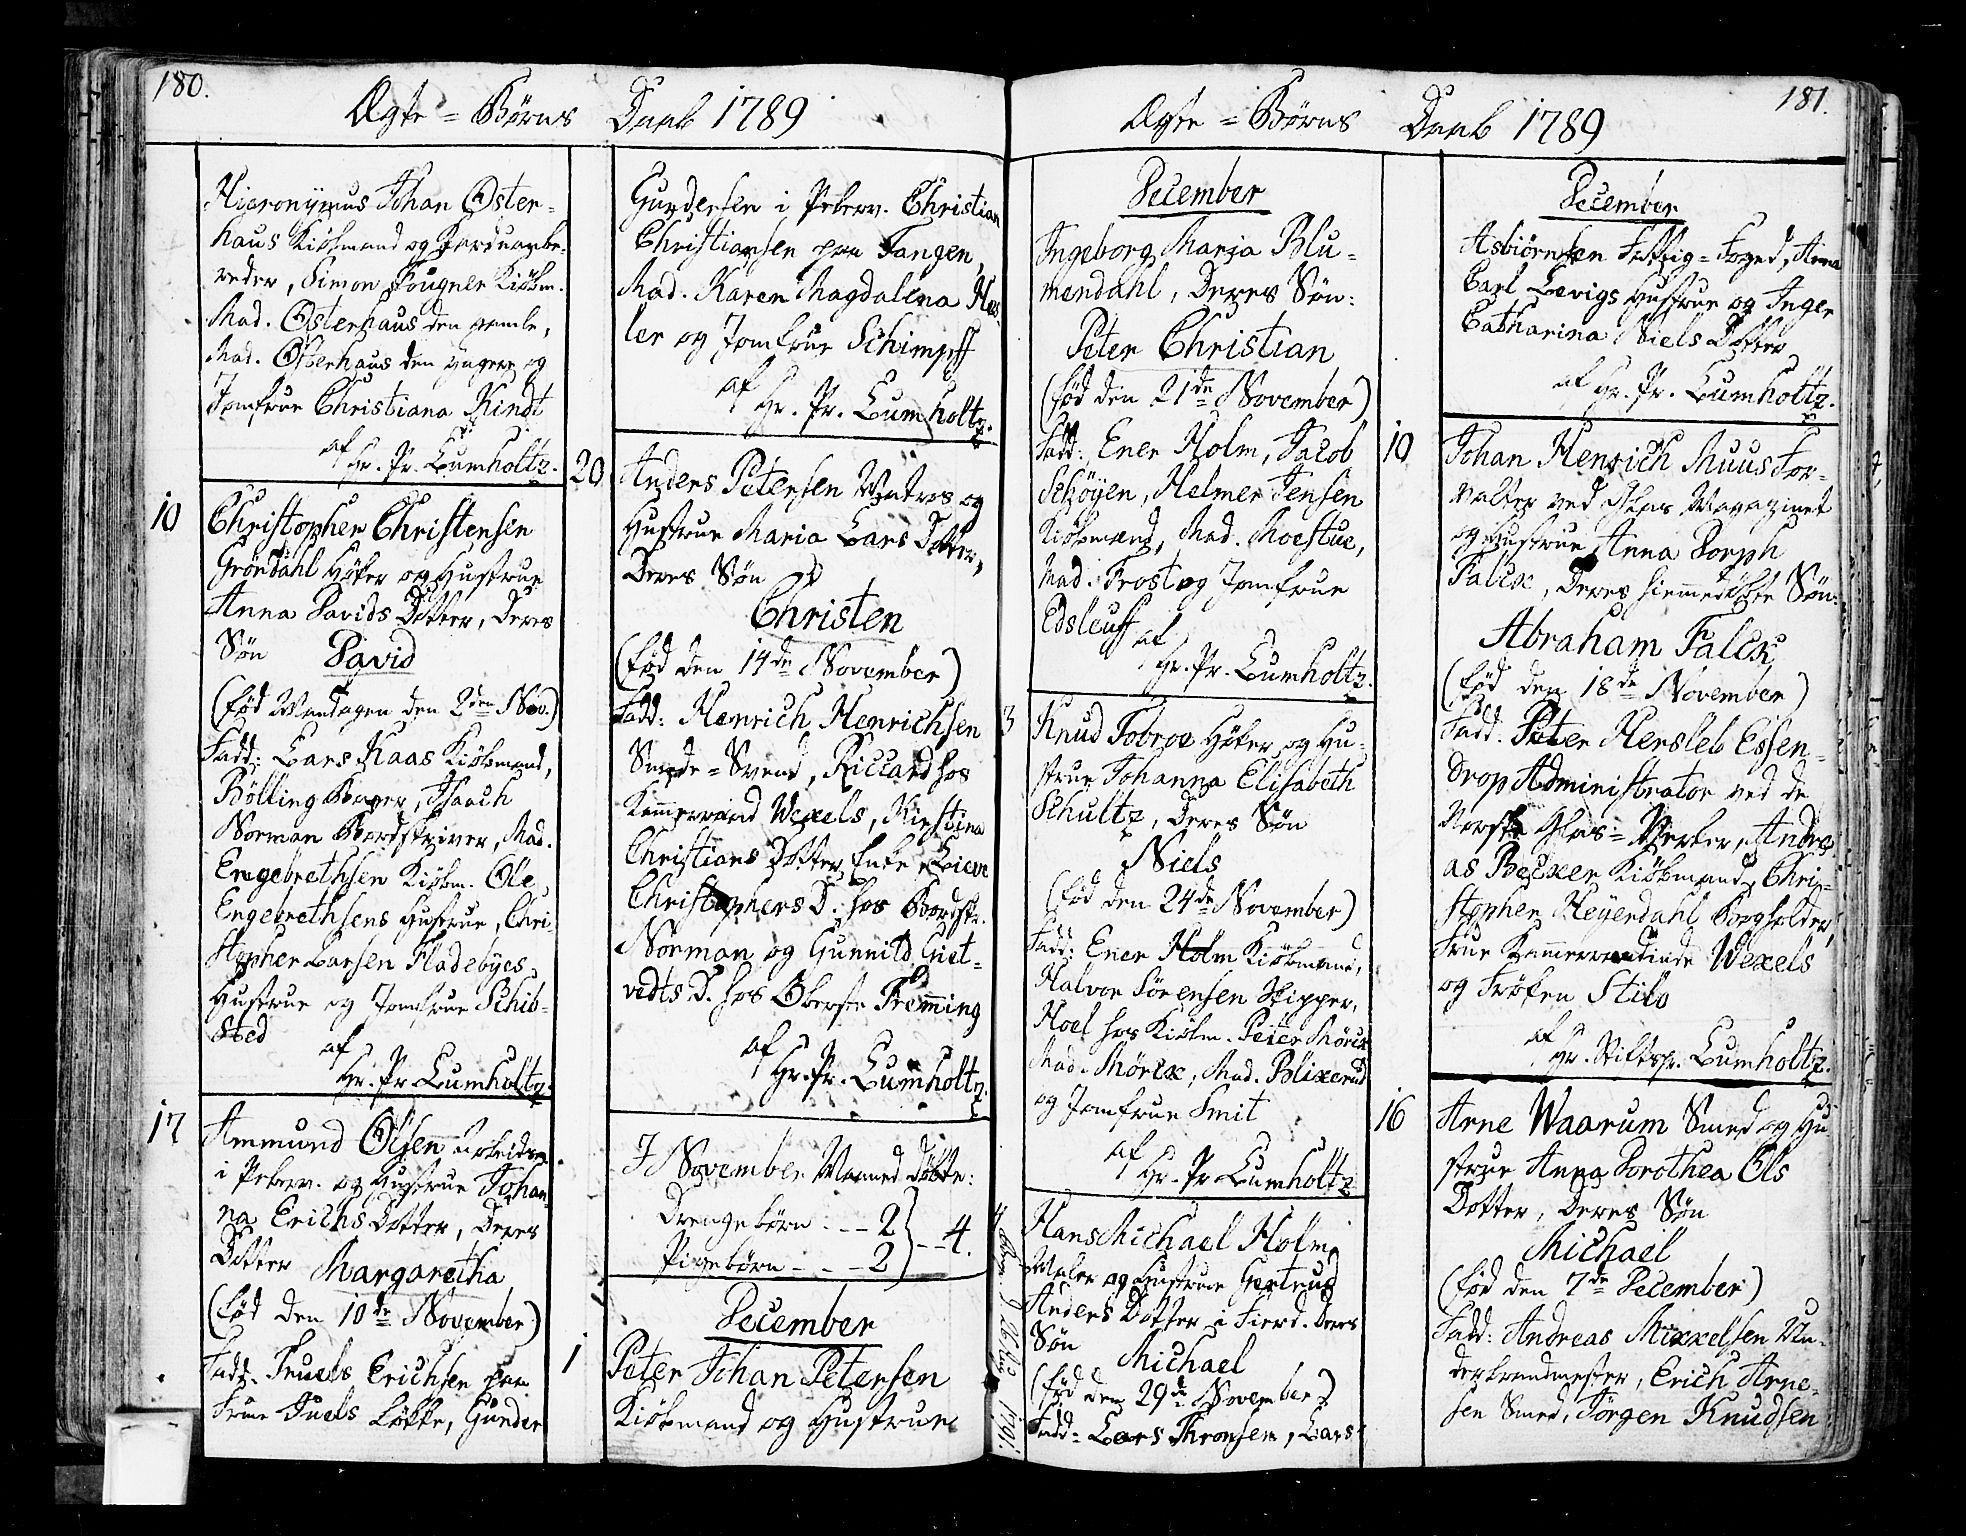 180.
Ægte = Børns Daab 1789
Hieronymus Johan Oster=
haus Kiøbmand og
reder, Simon Fougner Kiøbm.
Mad. Osterhaus den gamle,
Mad. Osterhaus den yngere og
Jomfrue Christiana Kindt
af
Hr. Pr. Lumholtz.
10
Christopher Christensen
Gröndahl Höker og Hustrue
Anna Davids Dotter, Deres
Søn David
(fød Mandagen den 2den Nov.)
Fadd: Lars Kaas Kiøbmand,
Bölling Bager, Isaach
Norman Bordskriver, Mad.
Engebrethsen Kiøbm. Ole
Engebrethsens Hustrue, Chri
stopher Larsen Fladebyes
Hustrue og Jomfrue Schib=
sted
af
Hr. Pr. Lumholtz.
17
Ammund Olsen Arbeidsm.
i Peberv. og Hustrue Johan
na Erichs Dotter, Deres
Dotter Margaretha
(fød den 10de November)
Fadd. Truels Erichsen paa
Frue Juels Løkke, Gunder
Gundersen i Peberv. Christian
Christiansen paa Tangen,
Mad. Karen Magdalena Hes=
ler og Jomfrue Schimpff
af
Hr. Pr. Lumholtz.
20
Anders Petersen Matros og
Hustrue Maria Lars Dotter,
Deres Søn
Christen
(fød den 14de November)
Fadd: Henrich Henrichsen
Smede=Svend, Riccard hos
Kammerraad Wexels, Kirstina
Christians Dotter Enke Siem
Christophers D. hos Bordskr.
Norman og Gunnild Giet=
vedts D. hos Oberste Fremming
af
Hr. Pr. Lumholtz.
I November Maaned døbte:
Drengebørn - - 2
Pigebørn - - - 2 } - - 4.
December
1
Peter Johan Petersen
Kiøbmand og Hustrue
181.
Ægte = Børns Daab 1789
December
Ingeborg Maria Blu=
mendahl, Deres Søn:
Peter Christian
(fød den 21de November)
Fadd: Ener Holm, Jacob
Schöyen, Helmer Jensen
Kiøbmænd, Mad. Moestue,
Mad. Frost og Jomfrue
Edsleuff
af
Hr. Pr. Lumholtz.
3
Knud Fobroe Höker og Hu=
strue Johanna Elisabeth
Schultz, Deres Søn
Niels
(fød den 24de November)
Fadd: Ener Holm Kiøbmand,
Halvor Sörensen Skipper,
Hoel hos Kiøbm. Peter Mörck
Mad. Mörck, Mad. Blixerud
og Jomfrue Smit
af
Hr. Pr. Lumholtz
Hans Michael Holm
Maler og Hustrue Gertrud
Anders Dotter i Fierd. Deres
Søn Michael
(fød den 29de November)
Fadd: Lars Thronsen, Lars
December
Asbiörnsen Fattig=Foged, Anna
Carl Levigs Hustrue og Inger
Catharina Niels Dotter
af Hr. Pr. Lumholtz.
10
Johan Henrich Muus For=
valter ved Glas Magazinet
og Hustrue Anna Dorph
Falck, Deres hiemmedøbte Søn:
Abraham Falck
(fød den 18de November)
Fadd. Peter Hersleb Essen=
drop Administrator ved de
Norske Glas=Verker, Andre
as Becker Kiøbmand, Chri=
stopher Heyerdahl Bogholder,
Frue Kammerraadinde Wexels
og Frøken Stibo
af
Hr. Stiftspr. Lumholtz.
16
Arne Waarum Smed og Hu
strue Anna Dorothea Ols
Dotter, Deres Søn
Michael
(fød den 7de December)
Fadd: Andreas Mikkelsen Un=
derbrandmester, Erich Arne=
sen Smed, Jörgen Knudsen